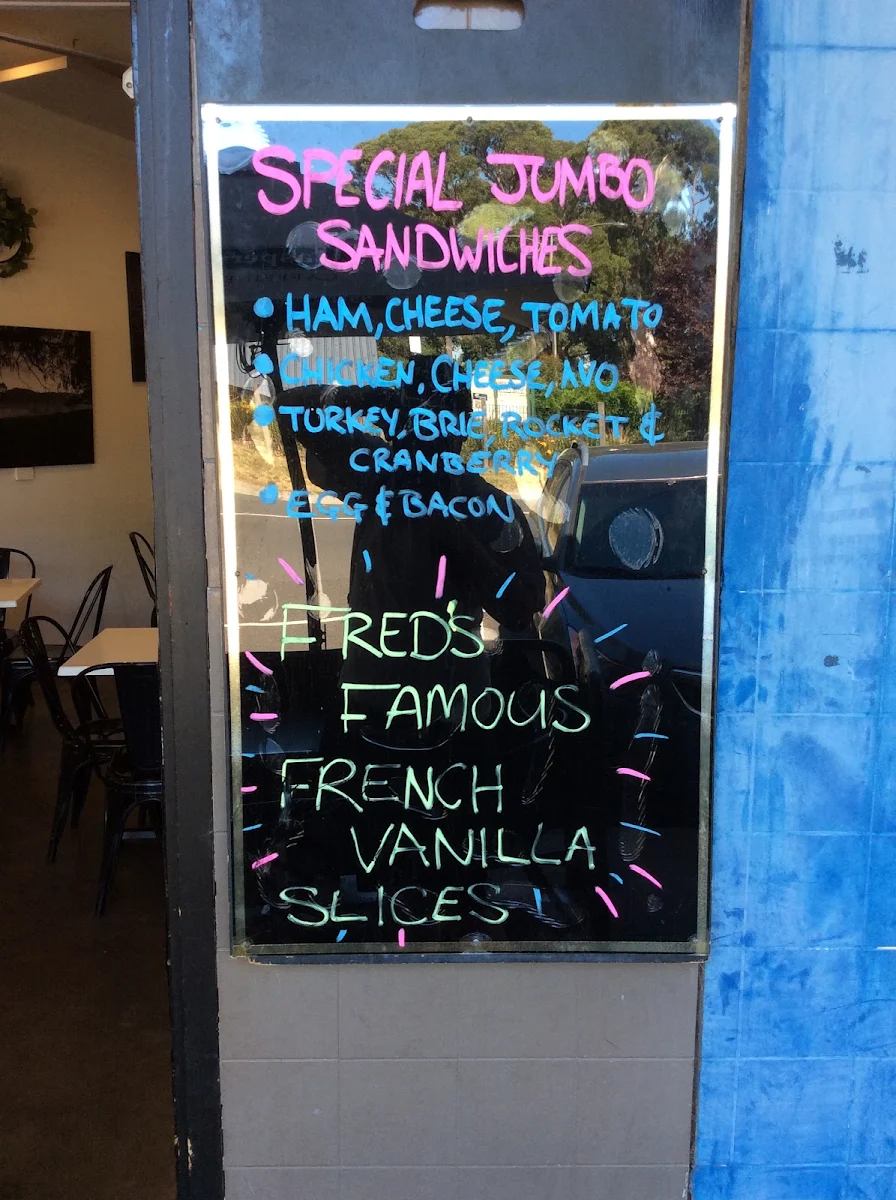 SPECIAL JUMBO
SANDWICHES
• HAM, CHEESE, TOMATO
• CHICKEN, CHEESE, AVO
• TURKEY, BRIE, ROCKET &
CRANBERRY
• EGG & BACON
FRED'S
FAMOUS
FRENCH
VANILLA
SLICES